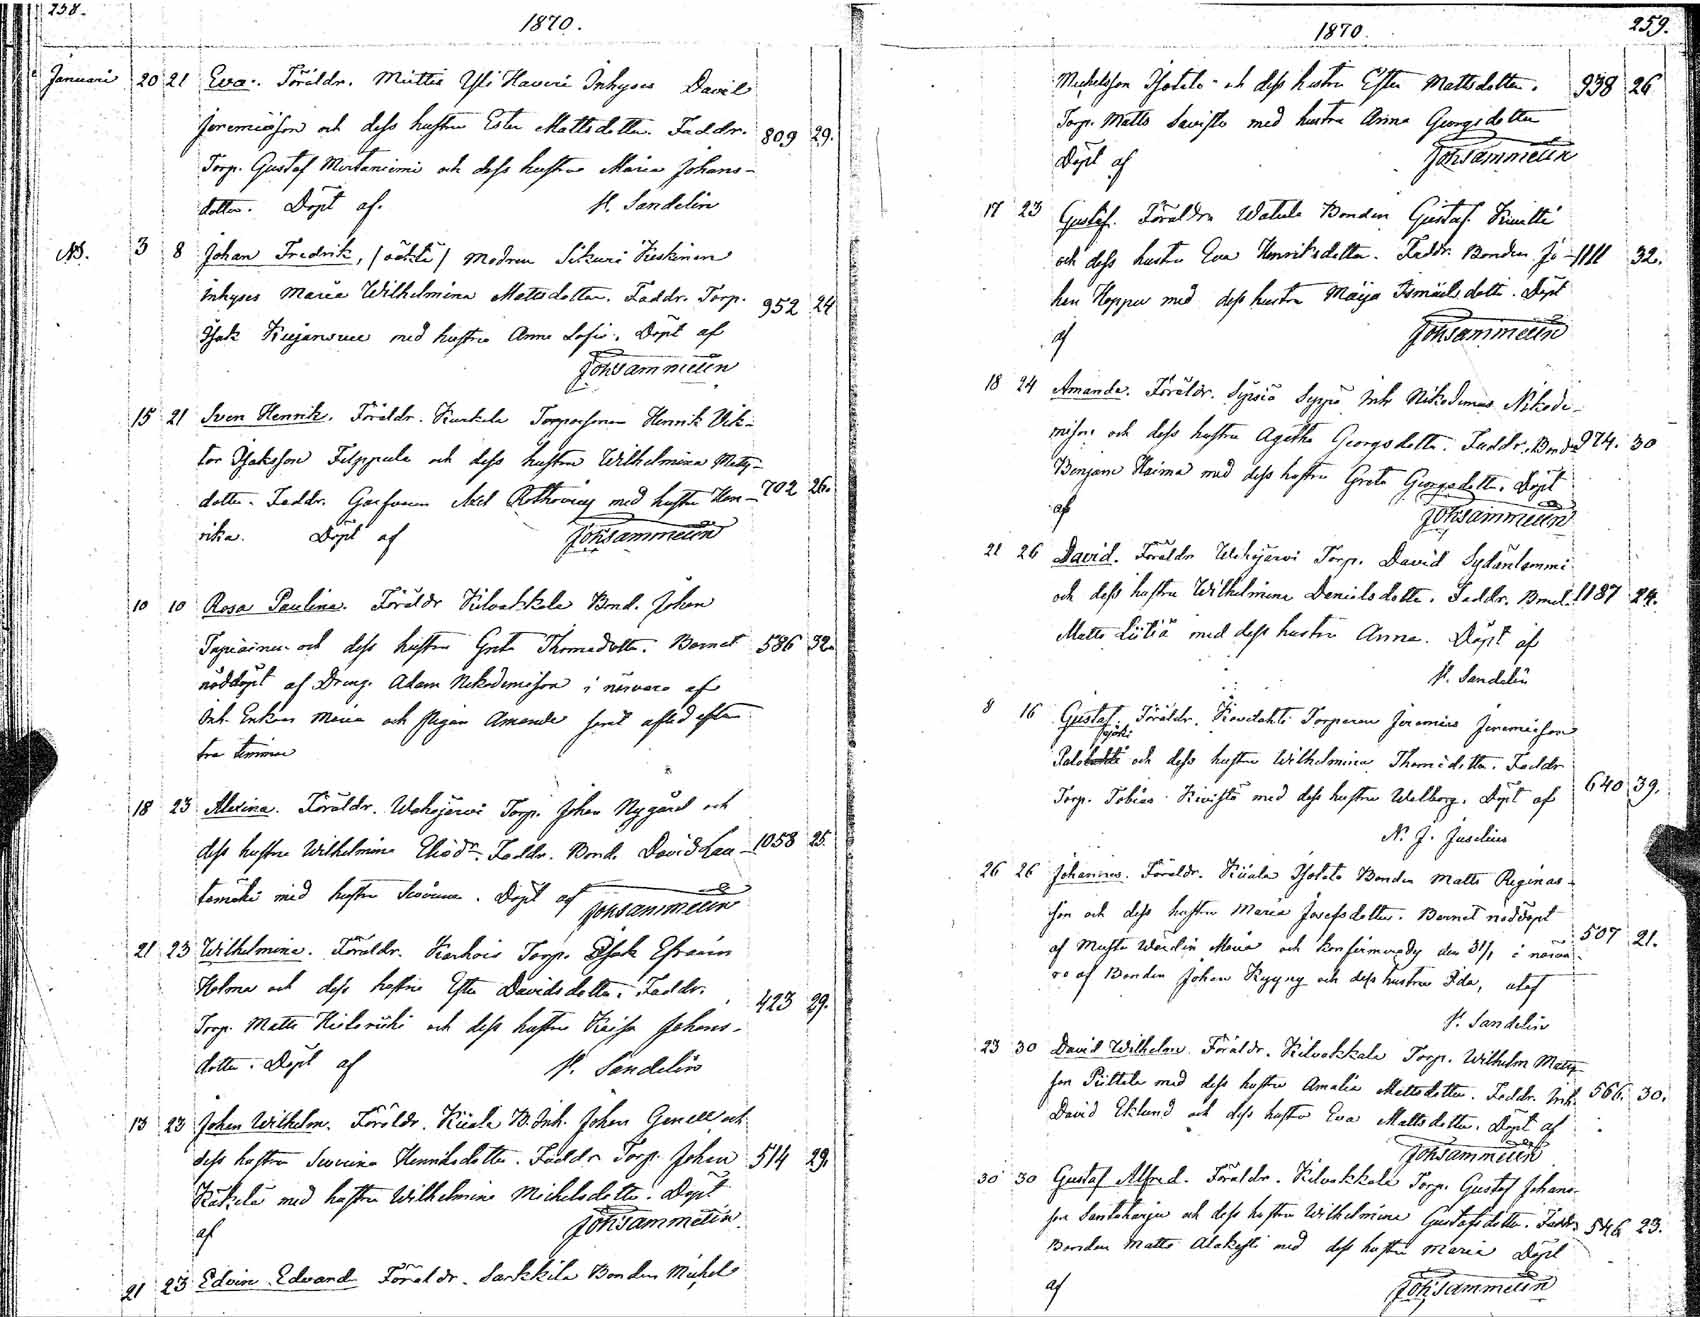 258.
1870.
Januari 20 21 Eva. Föräldr. Mattis Yli Haveri Inhyses David
Jeremiasson och dess hustru Ester Mattsdotter. Faddr. 809 29.
Torp. Gustaf Mertaniemi och dess hustru Maria Johans-
dotter. Döpt af. Sandelin
3 8 Johan Fredrik, (oäkta) Modren Sikuri Keskinen
inhyses Maria Wilhelmina Mattsdotter. Faddr. Torp. 952 24
Isak Kujansuu med hustru Anna Sofia. Döpt af
Joh: Sammelin
15 21 Sven Henrik. Föräldr. Kurkela Henrik Vik-
tor Isaksson Filppula och dess hustru Wilhelmina Matts-
dotter. Faddr. Axel med hustru Hen- 702 26.
rika. Döpt af Joh: Sammelin
10 10 Rosa Paulina. Föräldr Kilvakkala Bond. Johan
och dess hustru Greta Thomasdotter. Barnet 586 32.
nöddöpt af Dreng. Adam Nikodemisson i närvaro af
Inh. Enkan Maria och pigan Amanda samt afled efter
tre timmar
18 23 Alexina. Föräldr. Wahojärvi Torp. Johan Nygård och
dess hustru Wilhelmina Faddr. Bond. David Lau- 1058 25.
tamäki med hustru Serafina. Döpt af Joh: Sammelin
21 23 Wilhelmina. Föräldr. Karhois Torp. Isak Efraim
Holma och dess hustru Ester Davidsdotter. Faddr. 423 29.
Torp. Matts och dess hustru Kaisa Johans-
dotter. Döpt af Sandelin
13 23 Johan Wilhelm. Föräldr. Kiiala B. Inh. Johan Genell och
dess hustru Henriksdotter. Faddr Torp. Johan 514 29.
Käkelä med hustru Wilhelmina Michelsdotter. Döpt
af Joh: Sammelin
21 23 Edvin Edvard Föräldr. Sarkkila Bonden Michel
259.
1870.
Michelsson Isotalo och dess hustru Ester Mattsdotter. 938 26
Torp. Matts Savisto med hustru Anna Georgsdotter
Döpt af Joh: Sammelin
17 23 Gustaf. Föräldra Watula Bonden Gustaf
och dess hustru Eva Henriksdotter. Faddr. Bonden Jo- 1111 32.
han Hoppu med dess hustru Maija Ismaëlsdotter. Döpt
af Joh: Sammelin
18 24 Amanda. Föräldr. Sipsiö Seppä Inh Nikodemus Nikode-
misson och dess hustru Agatha Georgsdotter. Faddr. Bonden 974. 30
Benjam Haima med dess hustru Greta Georgsdotter. Döpt
af Joh: Sammelin
21 26 David. Föräldr Wahojärvi Torp. David Sydänlammi
och dess hustru Wilhelmina Danielsdotter. Faddr. Bond. 1187 24.
Matts med dess hustru Anna. Döpt af
Sandelin
8 16 Gustaf. Föräldr. Kovelahti Torparen Jeremias Jeremiasson
och dess hustru Wilhelmina Thomasdotter. Faddr
Torp. Tobias Kivistö med dess hustru Walborg. Döpt af 640 39.
N. J. Juselius
26 26 Johannes. Föräldr. Kiiala Isotalo Bonden Matts Reginas-
son och dess hustru Maria Josefsdotter. Barnet nöddöpt
af Maria och konfirmerady den 31/1 i närva- 507 21.
ro af Bonden Johan Kyyny och dess hustru Ida, utaf
Sandelin
23 30 David Wilhelm. Föräldr. Kilvakkala Torp. Wilhelm Matts-
son Piittala med dess hustru Amalia Mattsdotter. Faddr. Inh. 566. 30.
David Eklund och dess hustru Eva Mattsdotter. Döpt af
Joh: Sammelin
30 30 Gustaf Alfred. Föräldr. Kilvakkala Torp. Gustaf Johans-
son Santaharju och dess hustru Wilhelmina Gustafsdotter. Faddr. 546 23.
Bonden Matts med dess hustru Maria Döpt
af Joh: Sammelin